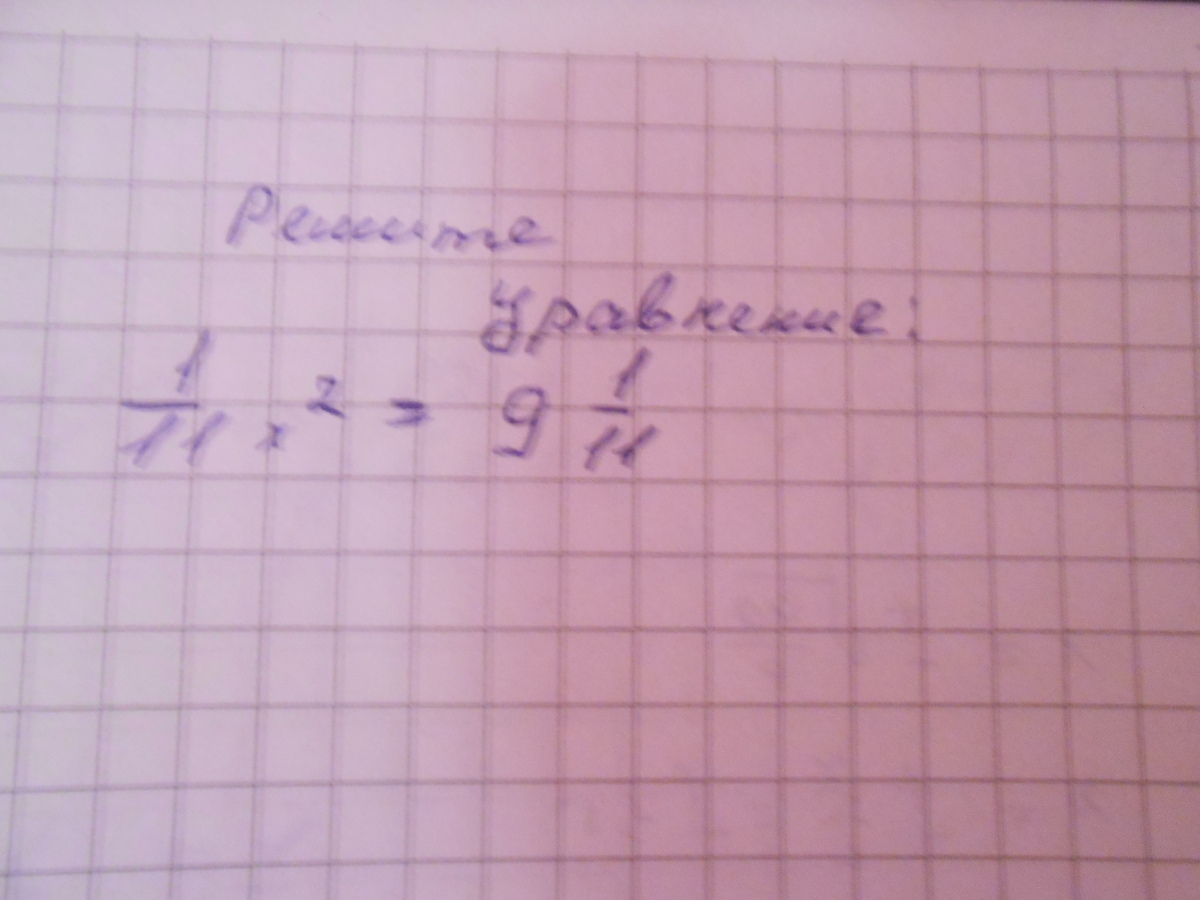 Решите
уравнение:
1/11 x² = 9 1/11